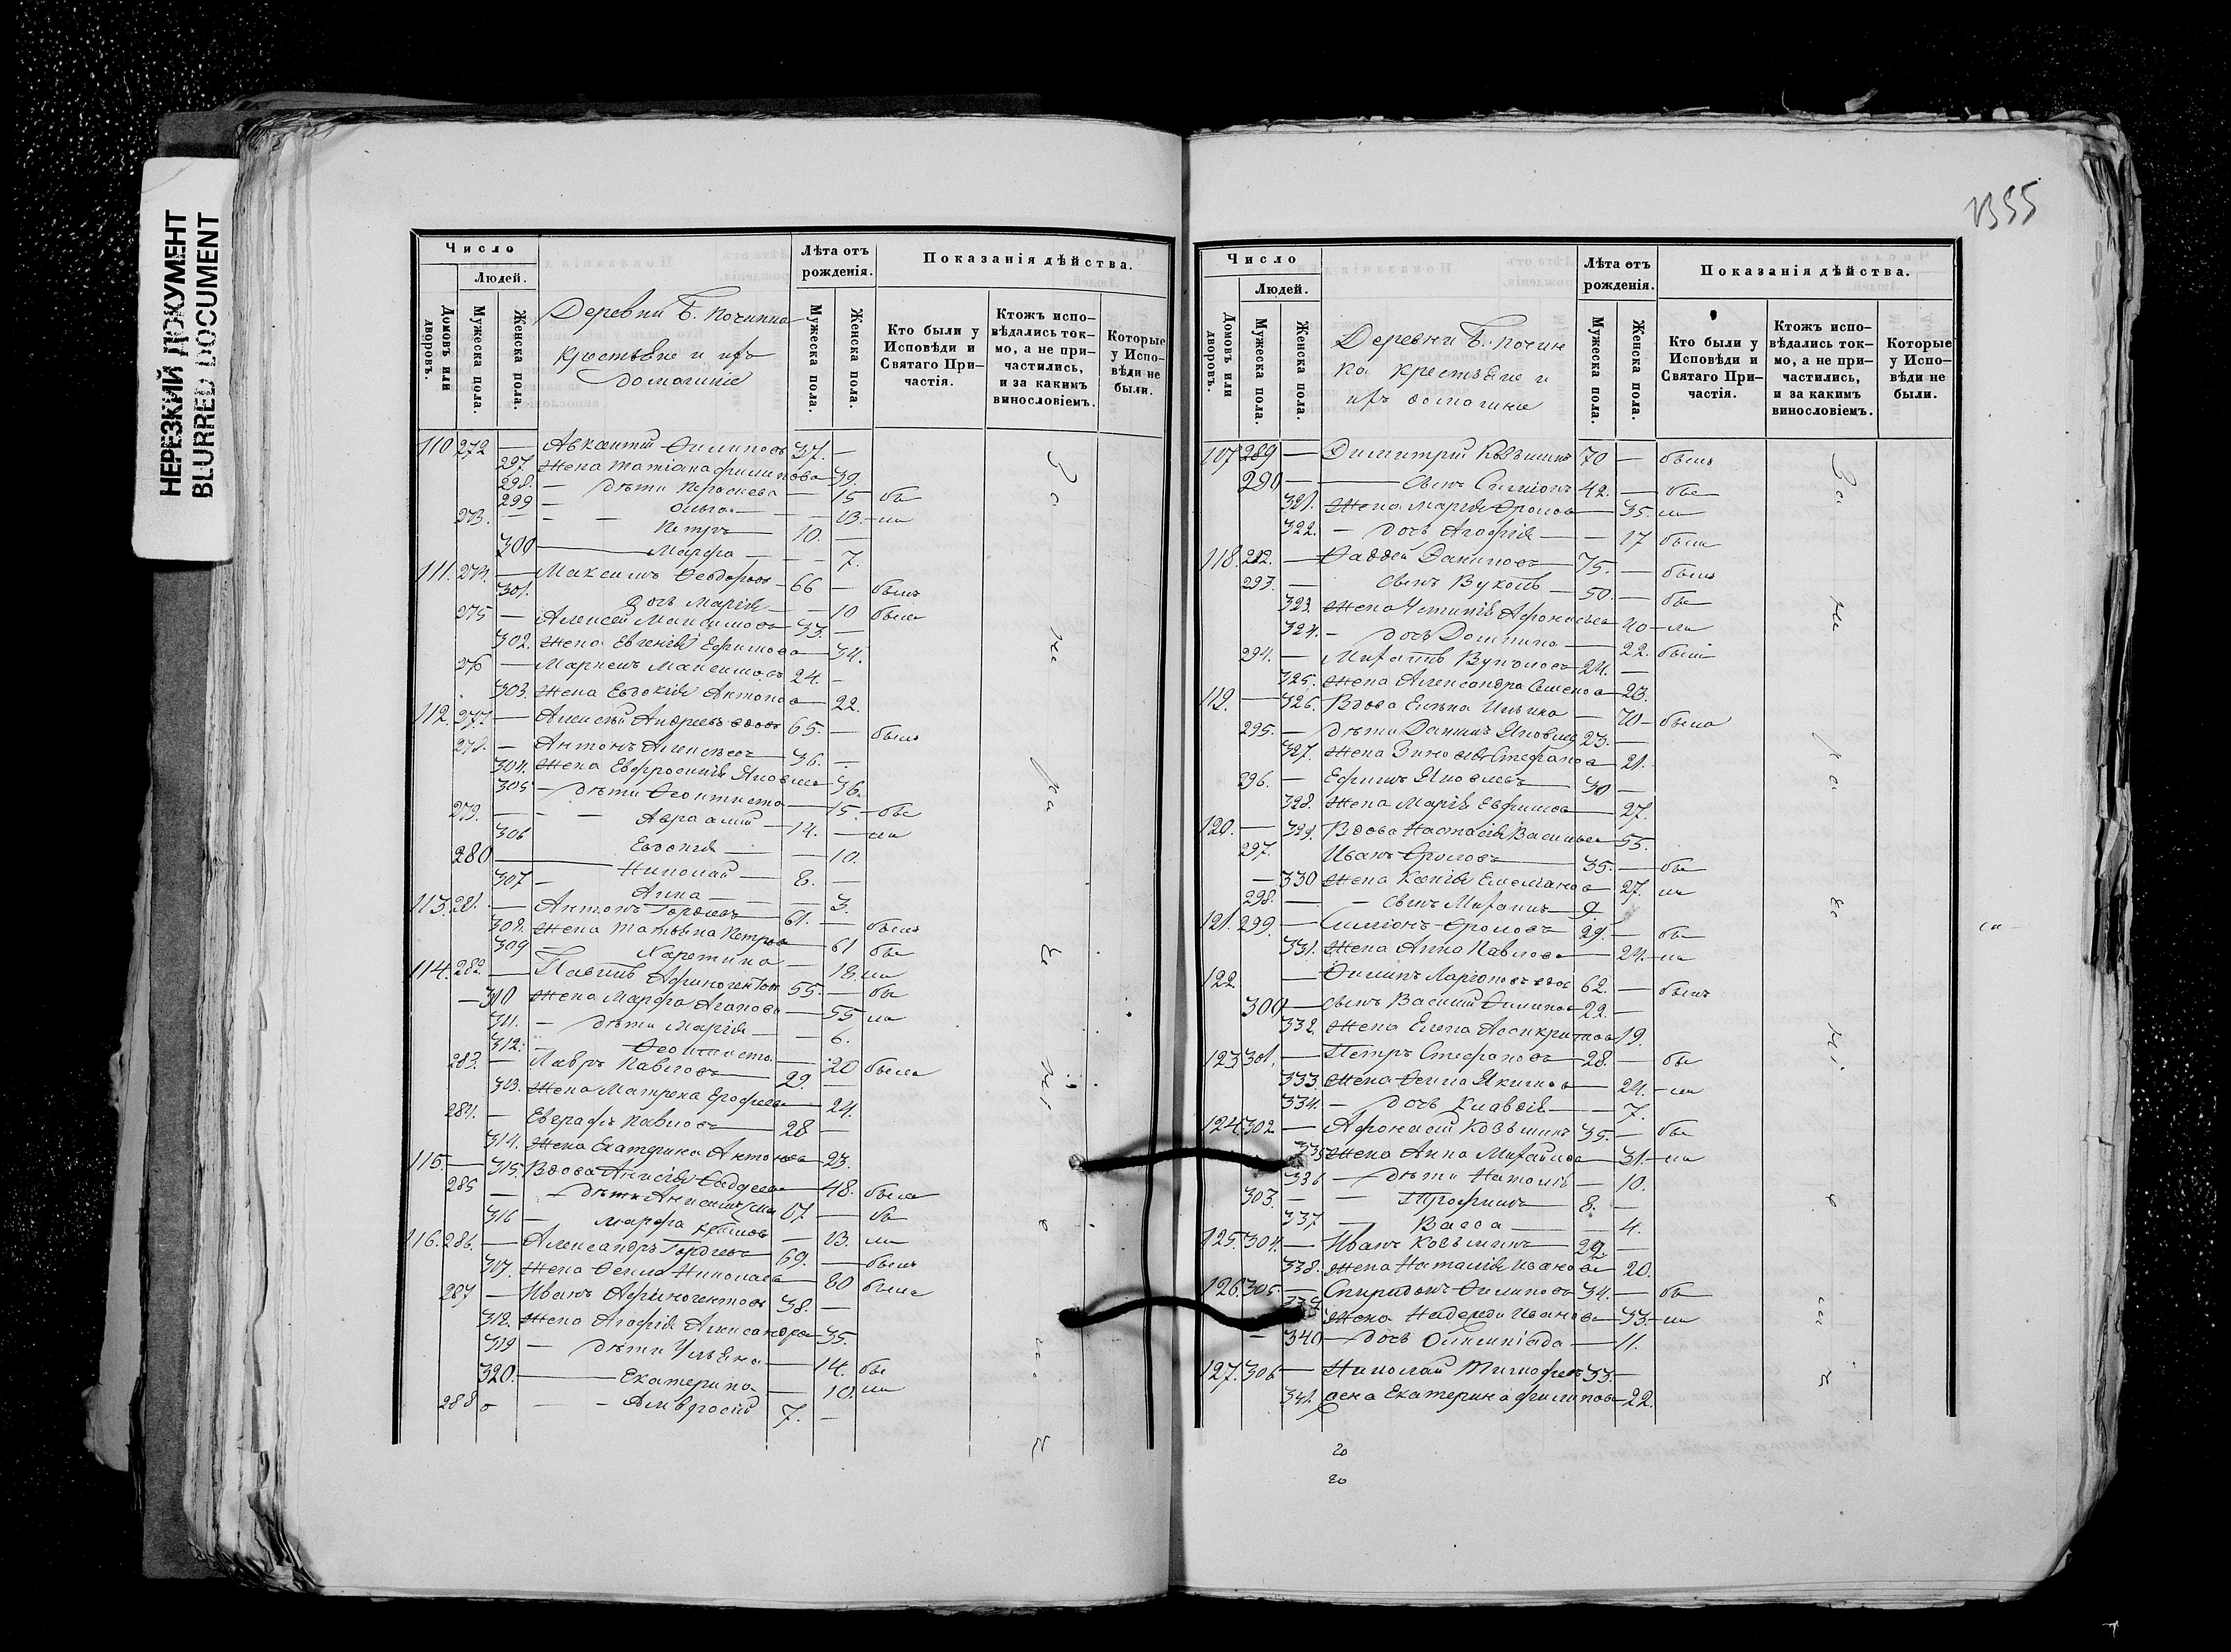 НЕРЕЗКИЙ ДОКУМЕНТ
BLURRED DOCUMENT
Число
Людей.
Домовъ или дворовъ.
Мужеска пола.
Женска пола.
Деревни Б. Починка
крестьяне и ихъ
домашніе
Лѣта отъ рожденія.
Мужеска пола.
Женска пола.
Показанія дѣйства.
Кто были у Исповѣди и Святаго Причастія.
Ктожъ исповѣдались токмо, а не причастились, и за какимъ винословіемъ.
Которые у Исповѣди не были.
110 272 — Авксентій Филиповъ 37. —
297. Жена Татіана Филипова — 39.
298. — Дѣти Параскева — 15 бы
299 — Ольга — 13. — ли
273. — — Петръ 10. —
300 — Марфа — 7.
111. 274. — Максимъ Ѳеодоровъ 66 — былъ
301. Дочь Марія — 10 была
275 — Алексей Максимовъ 33. —
302. Жена Евгенія Ефимова — 34.
276 — Маркелъ Максимовъ 24. —
303. Жена Евдокія Антонова — 22.
112. 277. — Алексѣй Андреевъ вдовъ 65. — былъ
278. — Антонъ Алексѣевъ 36. —
304. Жена Евфросинія Яковлева 36.
305 — Дѣти Феоктиста — 15. — бы
279. — — Авраамій 14. — ли
306 Евдокія — 10.
280 — Николай 8. —
307 — Анна — 3.
113. 281. — Антонъ Гордѣевъ 61. — былъ
308. Жена Татьяна Петрова — 61 бы
309 Харетина — 18. ли
114. 282. — Павелъ Афиногентовъ 55. — бы
310 Жена Марфа Агапова — 55 ли
311. — Дѣти Марія — 6.
312. — Феоктиста — 20 была
283. — Лавръ Павловъ 29 —
313. Жена Матрена Ерофеева — 24.
284. — Евграфъ Павловъ 28 —
314. Жена Екатерина Антонова — 23.
115. — 315. Вдова Анисія Фаддеева — 48. была
285 — Дѣти 17 — бы
316 — Марфа — 13. ли
116. 286. — Александръ Гордѣевъ 69. — былъ
317. Жена Фекла Николаева 60 была
287 — Иванъ Афиногентовъ 38. —
318. Жена Агафія Александрова 35.
319 — Дѣти Ульяна — 14. бы
320. — Екатерина — 10. ли
288 — — Амвросій 7. —
За не ра че ні е мъ
1355
Число
Людей.
Домовъ или дворовъ.
Мужеска пола.
Женска пола.
Деревни Б. Починка
крестьяне и
ихъ домашніе
Лѣта отъ рожденія.
Мужеска пола.
Женска пола.
Показанія дѣйства.
Кто были у Исповѣди и Святаго Причастія.
Ктожъ исповѣдались токмо, а не причастились, и за какимъ винословіемъ.
Которые у Исповѣди не были.
107 289 — Димитрій Козьминъ 70 — былъ
290 — Сынъ Симіонъ 42. — бы
321. Жена Марія Фролова — 35. ли
322. — Дочь Агафія — 17 была
118. 292. — Фаддей Даниловъ 75. — былъ
293. — Сынъ Вуколъ 50. — бы
323. Жена Устинія Афонасьева 40 — ли
324. — Дочь Домнина — 22. была
294. — Михаилъ Вуколовъ 24. —
325. Жена Александра Семенова 23.
119. — 326. Вдова Елена Ильина — 70 — была
295. — Дѣти Даніилъ Яковлевъ 23. —
327. Жена Зиновія Стефанова — 21.
296. — Ефимъ Яковлевъ 30 —
328. Жена Марія Евфимова — 27.
120. — 329. Вдова Настасія Васильева 53.
297. Иванъ Фроловъ 35. — бы
330 Жена Ксенія Емельянова 27. ли
298. — — Сынъ Михаилъ 9
121. 299. — Симіонъ Фроловъ 29. — бы
331. Жена Анна Павлова — 24. — ли
122 — Филипъ Ларіоновъ вдов 62. — былъ
300 — Сынъ Василій Филиповъ 22. —
332. Жена Елена Асинкритова 19.
123 301. — Петръ Стефановъ 28. — бы
333. Жена Фекла Якимова — 24. — ли
334. — Дочь Клавдія — 7.
124 302 — Афонасій Козьминъ 35. — бы
335 Жена Анна Михайлова — 31. — ли
336 — Дѣти Наталія — 10.
303. — — Трофимъ 8. —
337 — Васса — 4.
125. 304. — Иванъ Козьминъ 29. —
338. Жена Наталія Иванова 20.
126. 305. — Спиридонъ Филиповъ 34. — бы
339 Жена Надежда Иванова 33. — ли
340 — Дочь Олимпіада — 11.
127. 306 — Николай Тимофеевъ 33. —
341. Жена Екатерина Филипова 22.
За не ра че ні е мъ
20
80